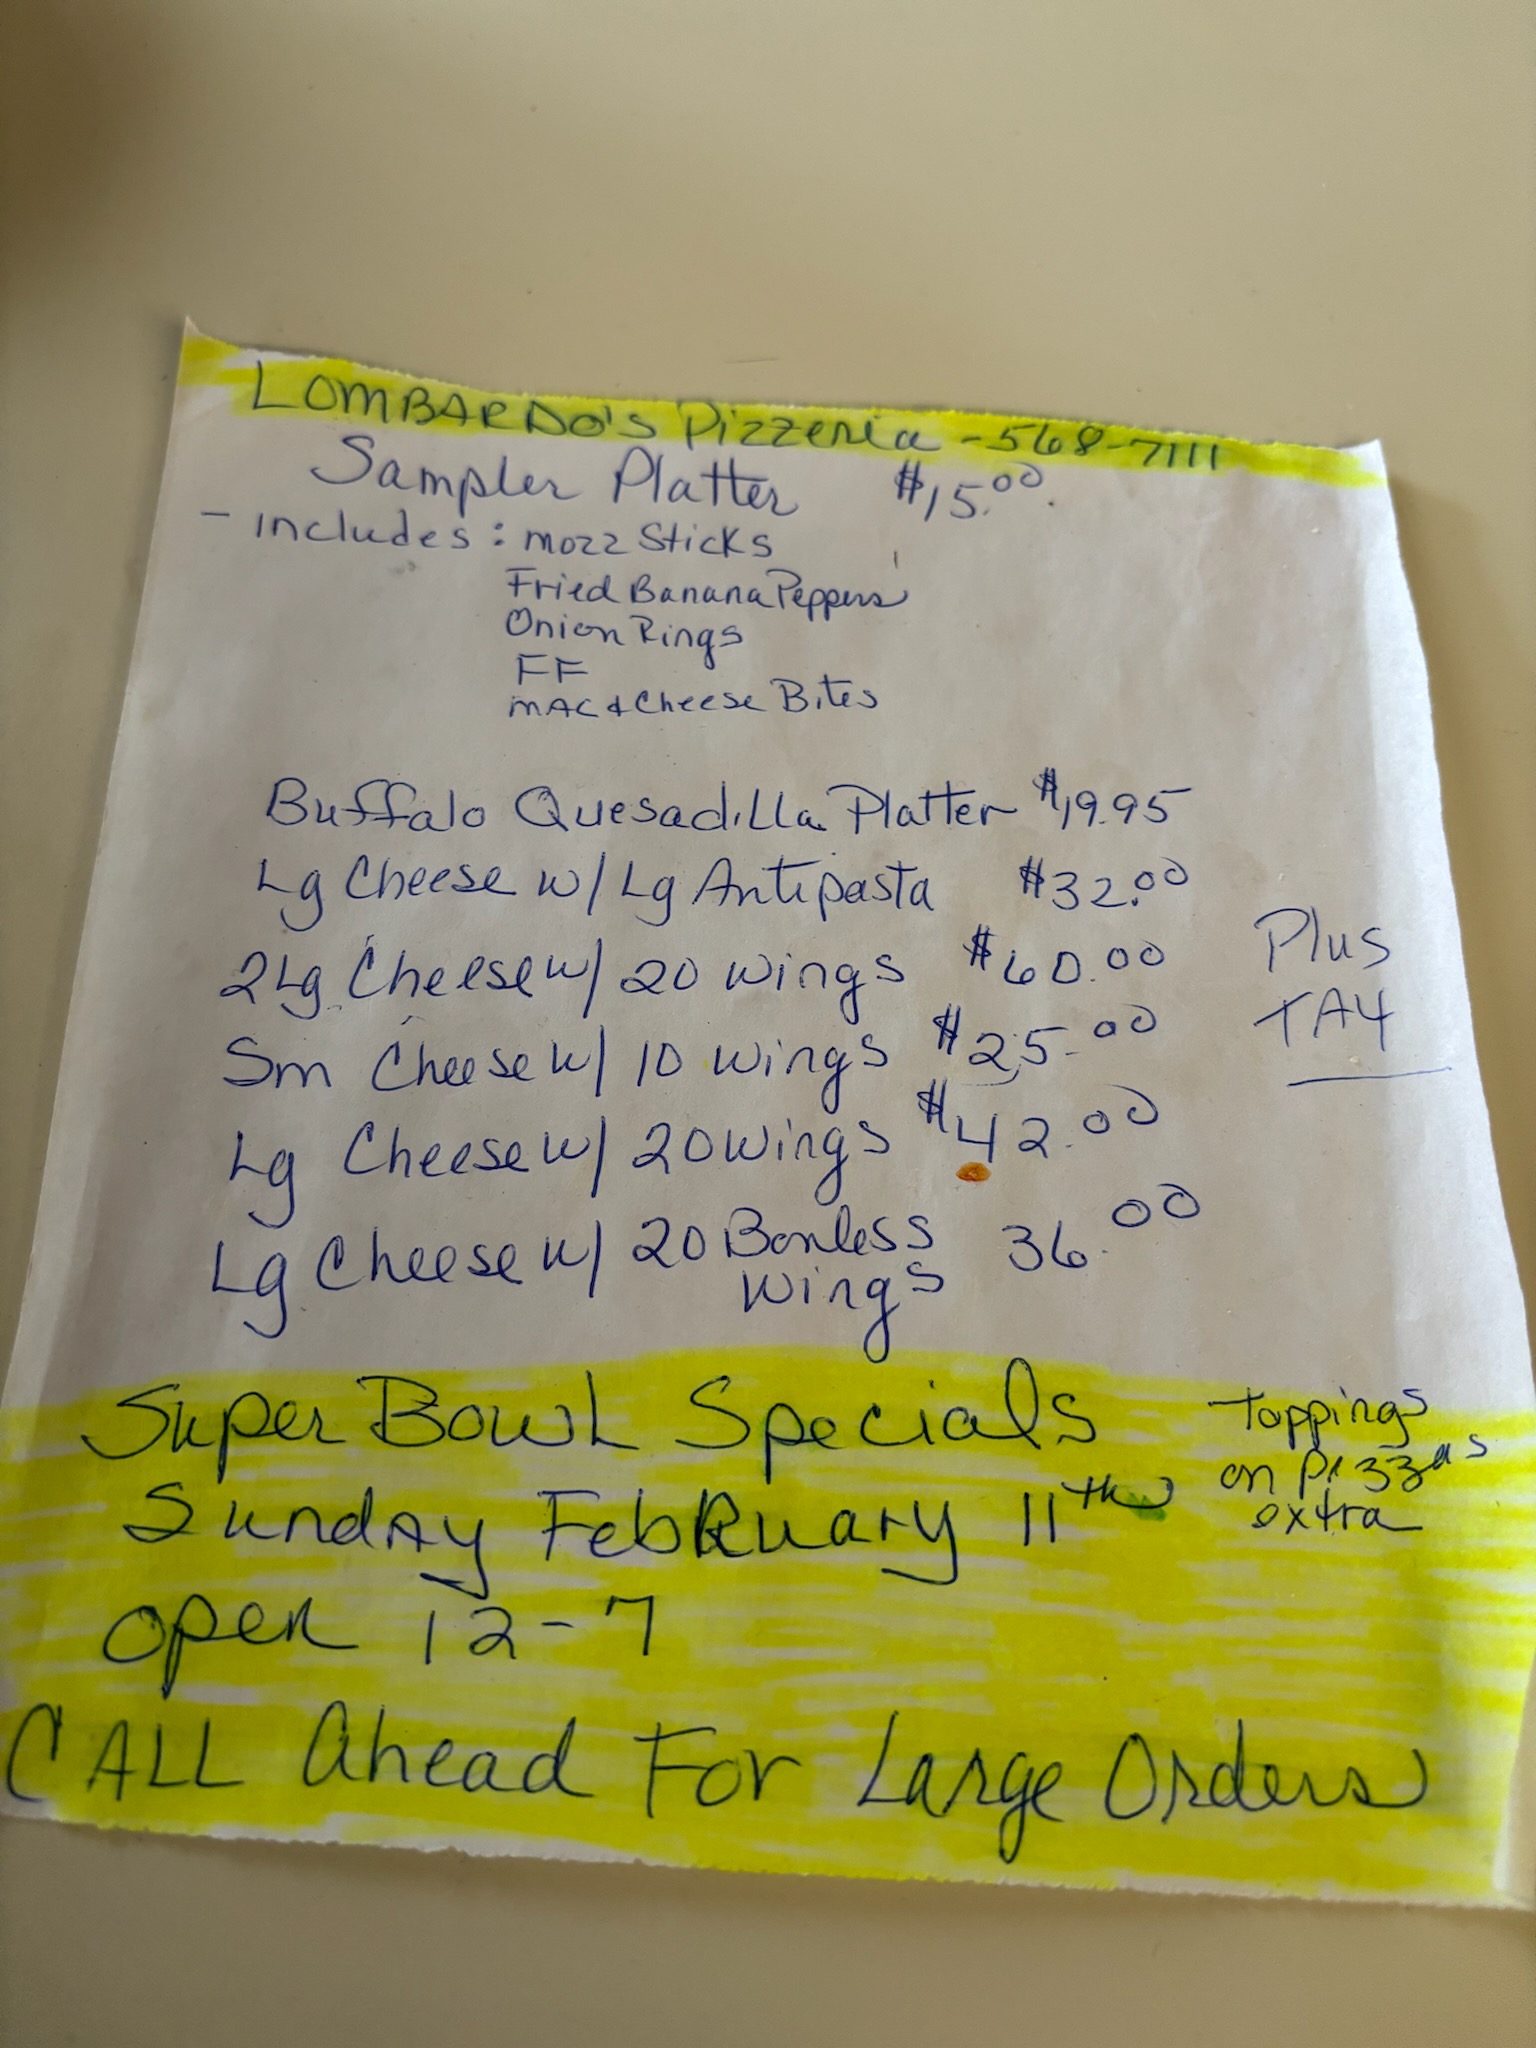 LOMBARDO'S Pizzeria - 568-7111
Sampler Platter $15.00
- includes : mozz Sticks
Fried Banana Peppers
Onion Rings
FF
MAC & Cheese Bites
Buffalo Quesadilla Platter $19.95
Lg Cheese w/ Lg Antipasta $32.00
2 Lg Cheese w/ 20 wings $60.00
Plus
Sm Cheese w/ 10 wings $25.00
TAX
Lg Cheese w/ 20 wings $42.00
Lg Cheese w/ 20 Bonless 36.00
wings
Super Bowl Specials
Sunday February 11th
toppings
on pizzas
extra
open 12-7
CALL Ahead For Large Orders